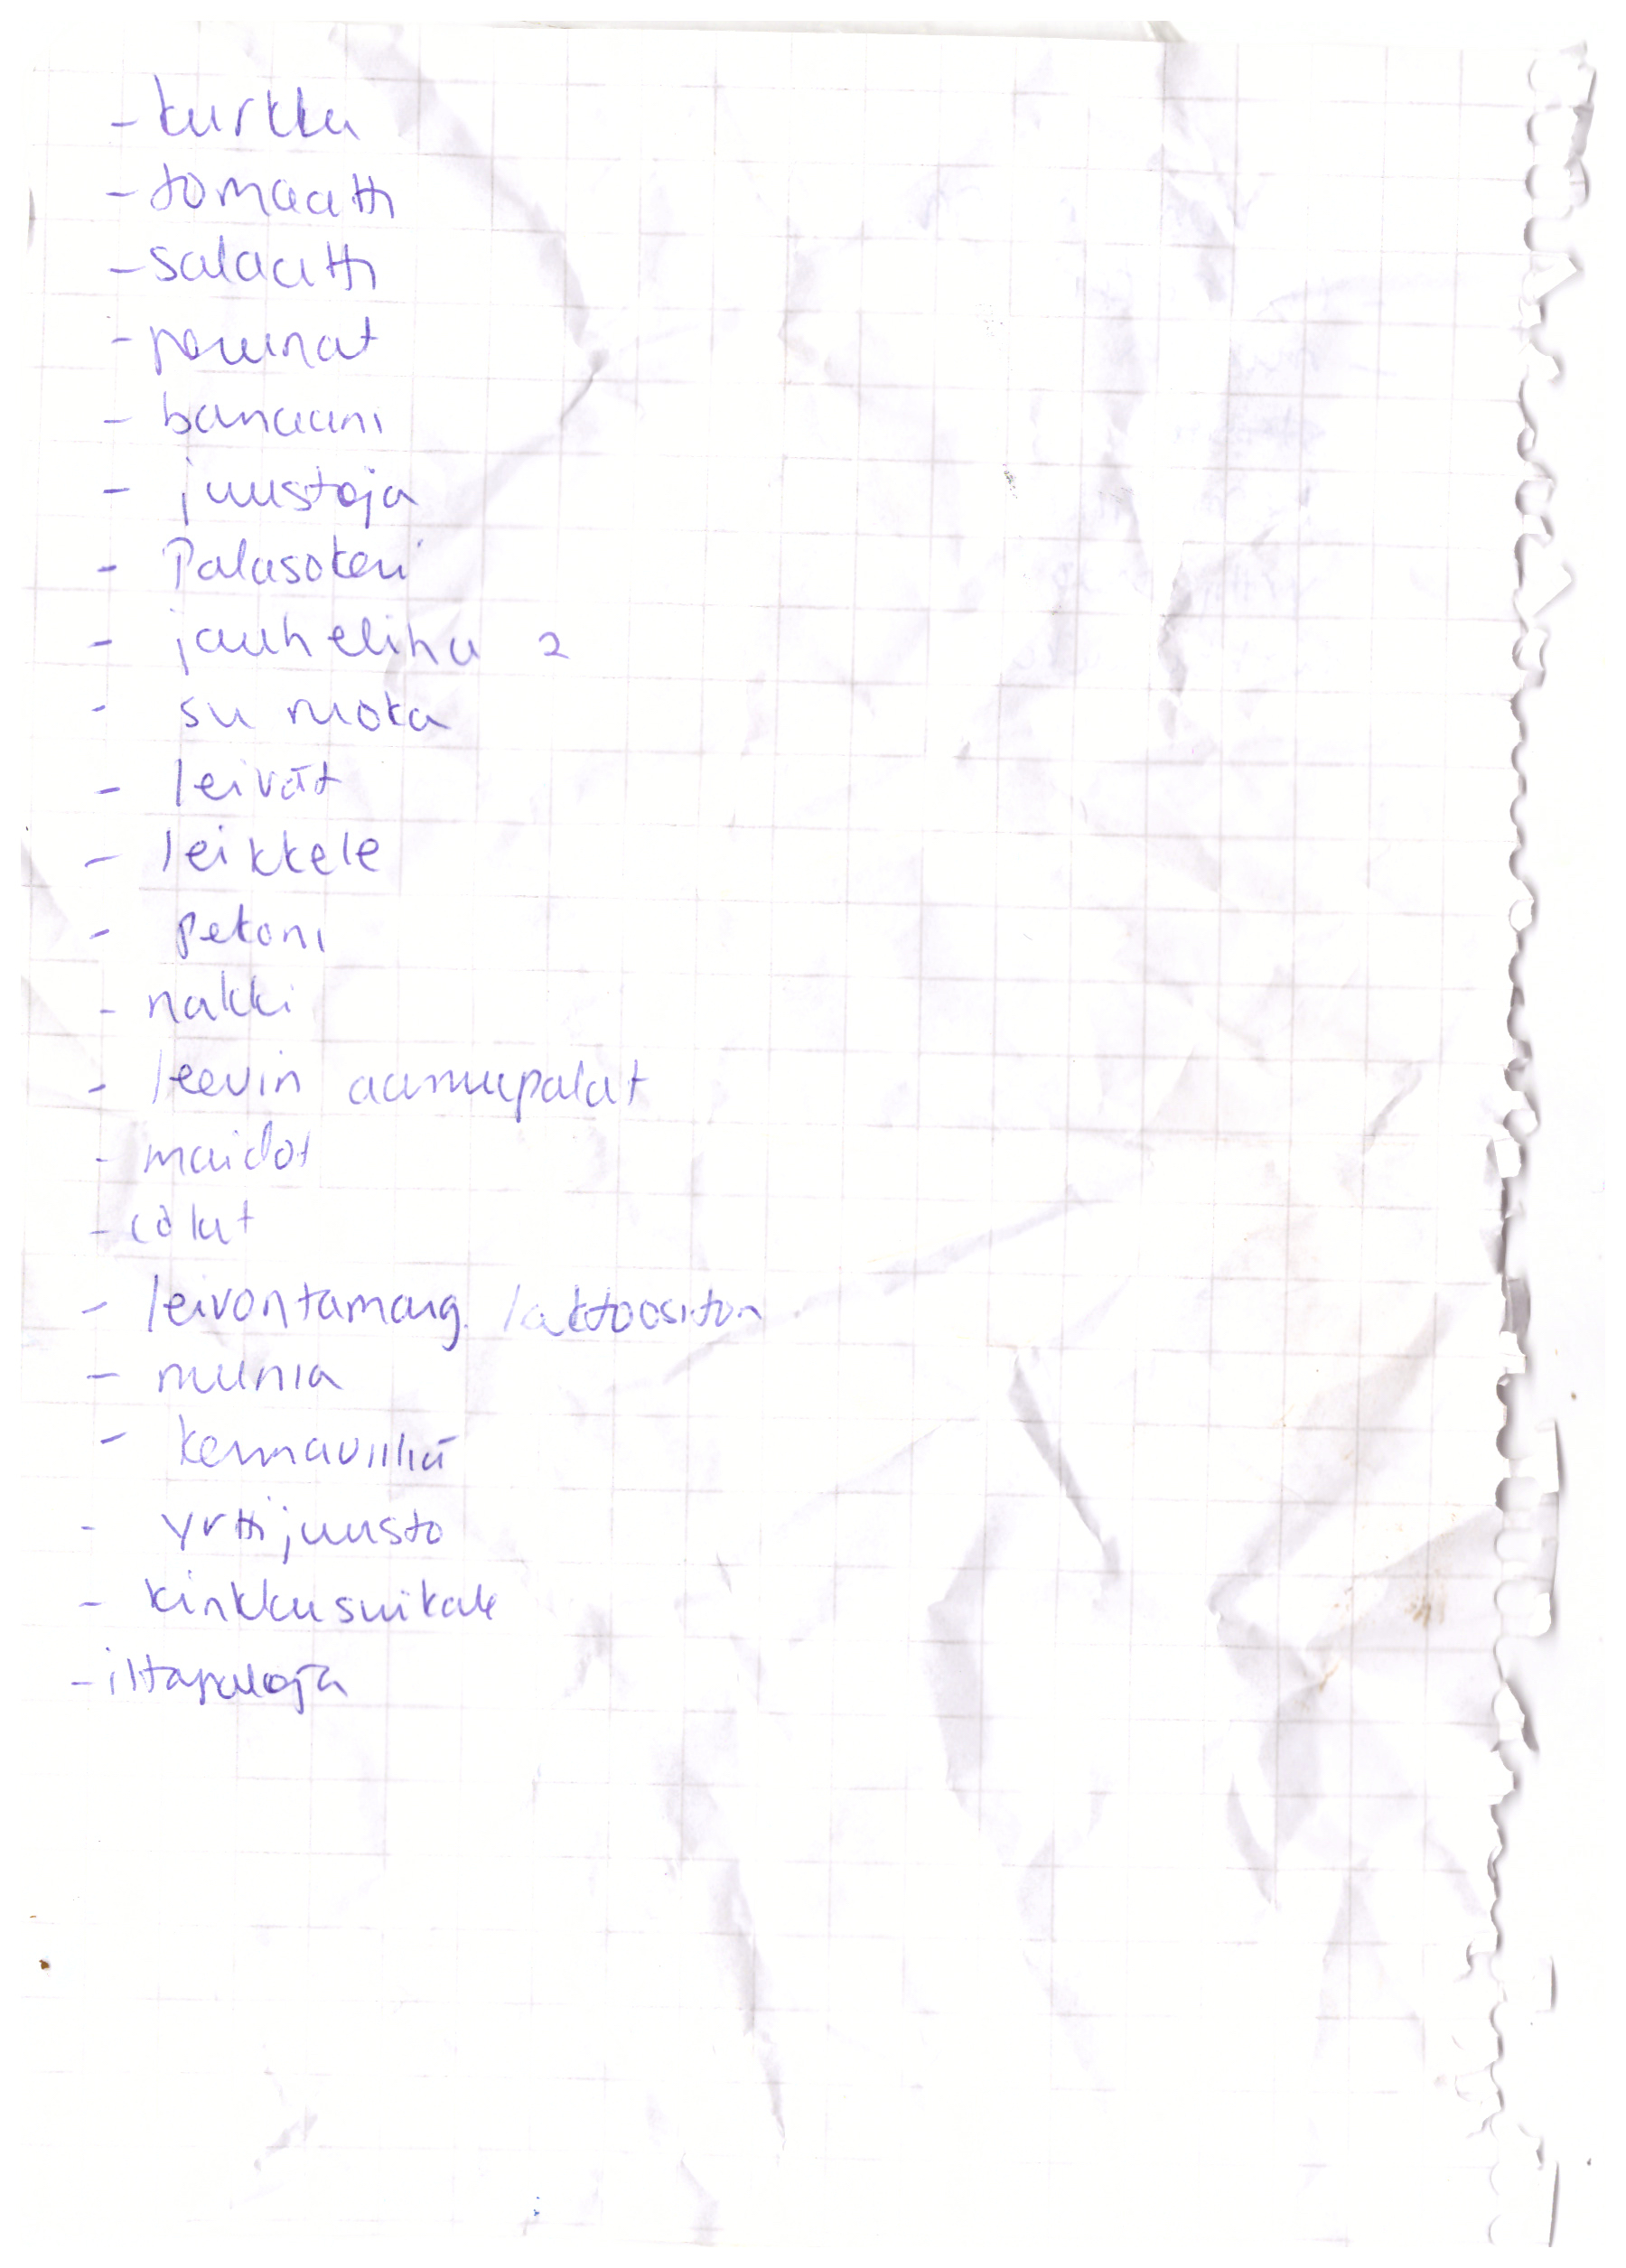 - kurkku
- tomaatti
- salaatti
- perunat
- banaani
- juustoja
- Palasokeri
- jauheliha 2
- su ruoka
- leivät
- leikkele
- pekoni
- nakki
- leevin aamupalat
- maidot
- colat
- leivontamarg. laktoositon
- munia
- kermaviiliä
- yrttijuusto
- kinkkusuikale
- iltapaloja